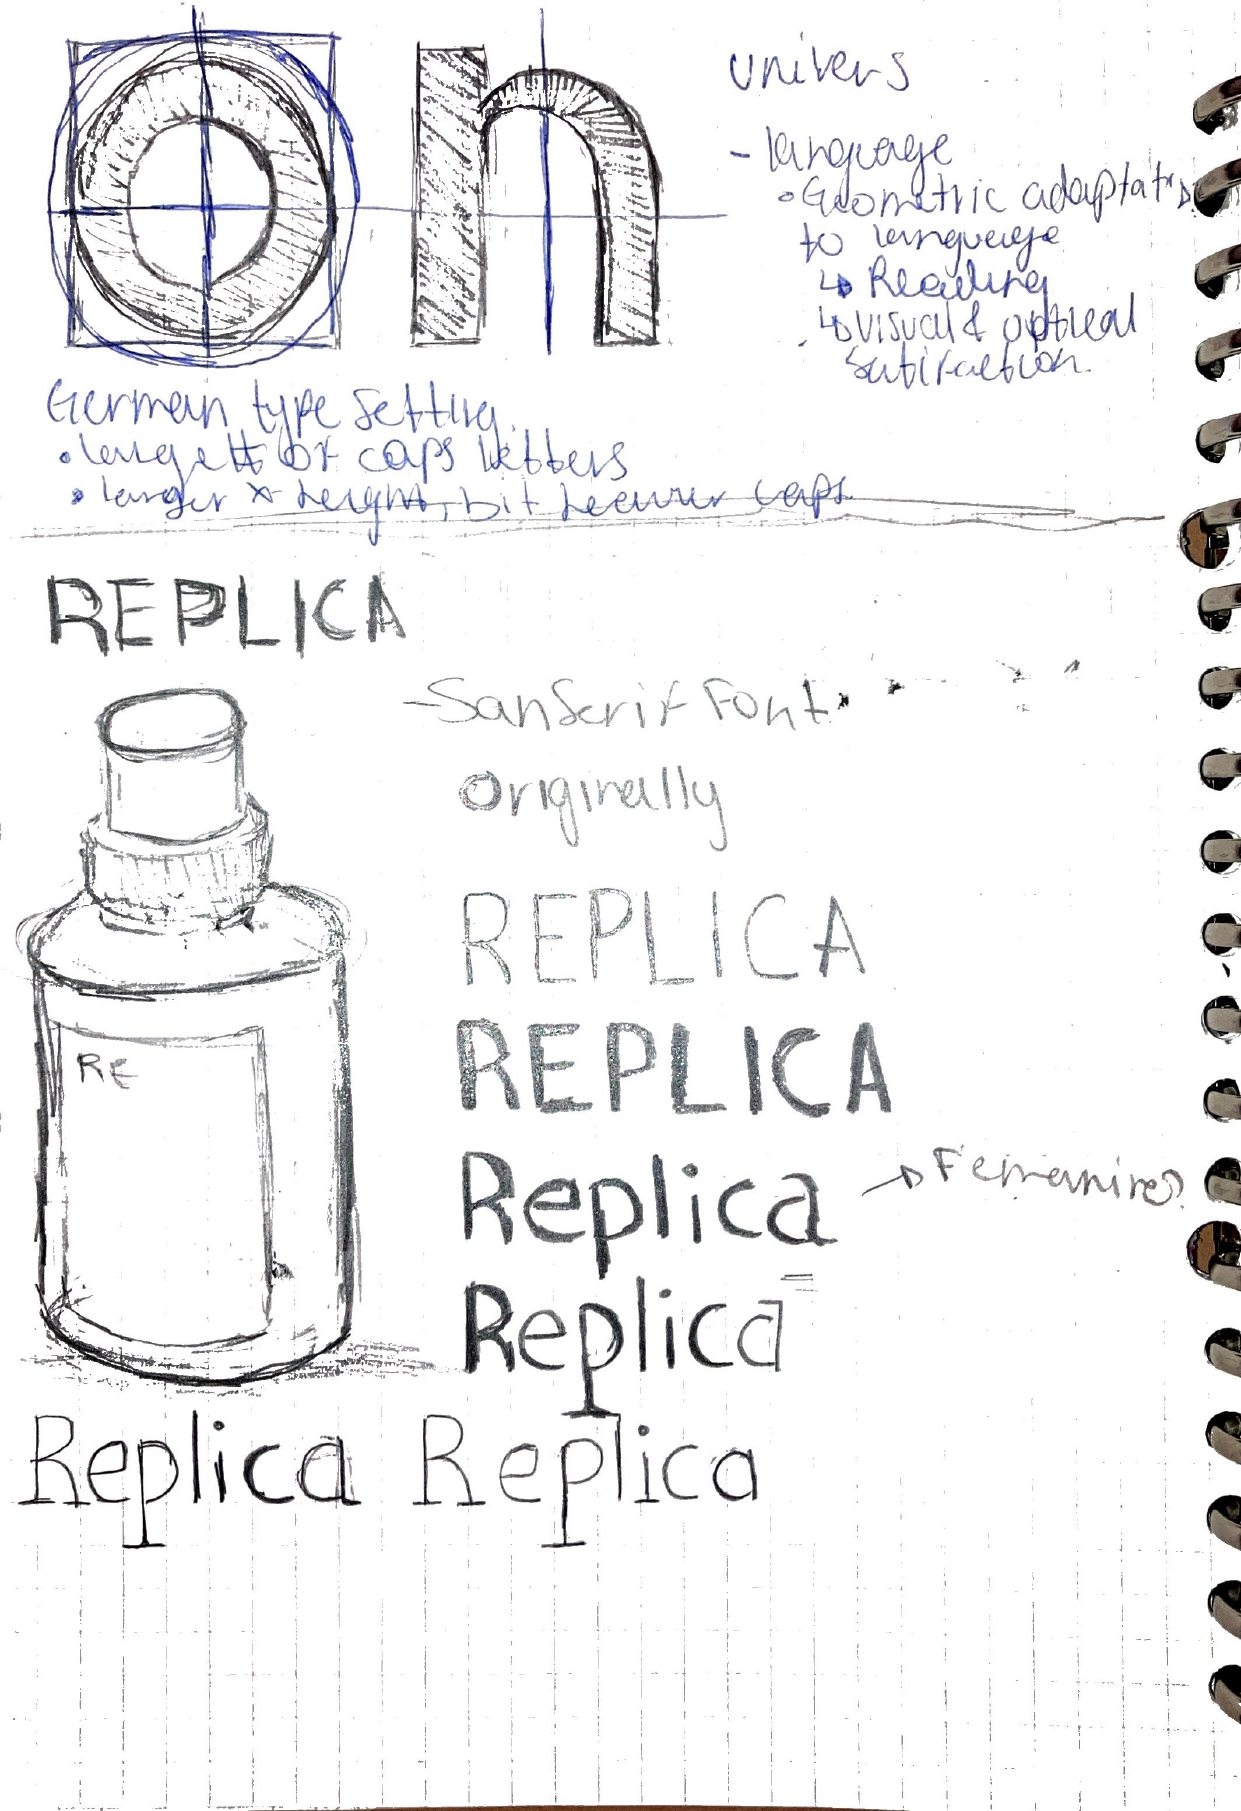 on
univers
- language
• Geometric adaptat
to language
↳ Reading
↳ visual & optical
satifaction.
German type setting.
• large # of caps letters
• larger x-height, bit heavier caps
REPLICA
- San Serif Font
Originally
REPLICA
RE
REPLICA
Replica → Femanine?
Replica
Replica Replica